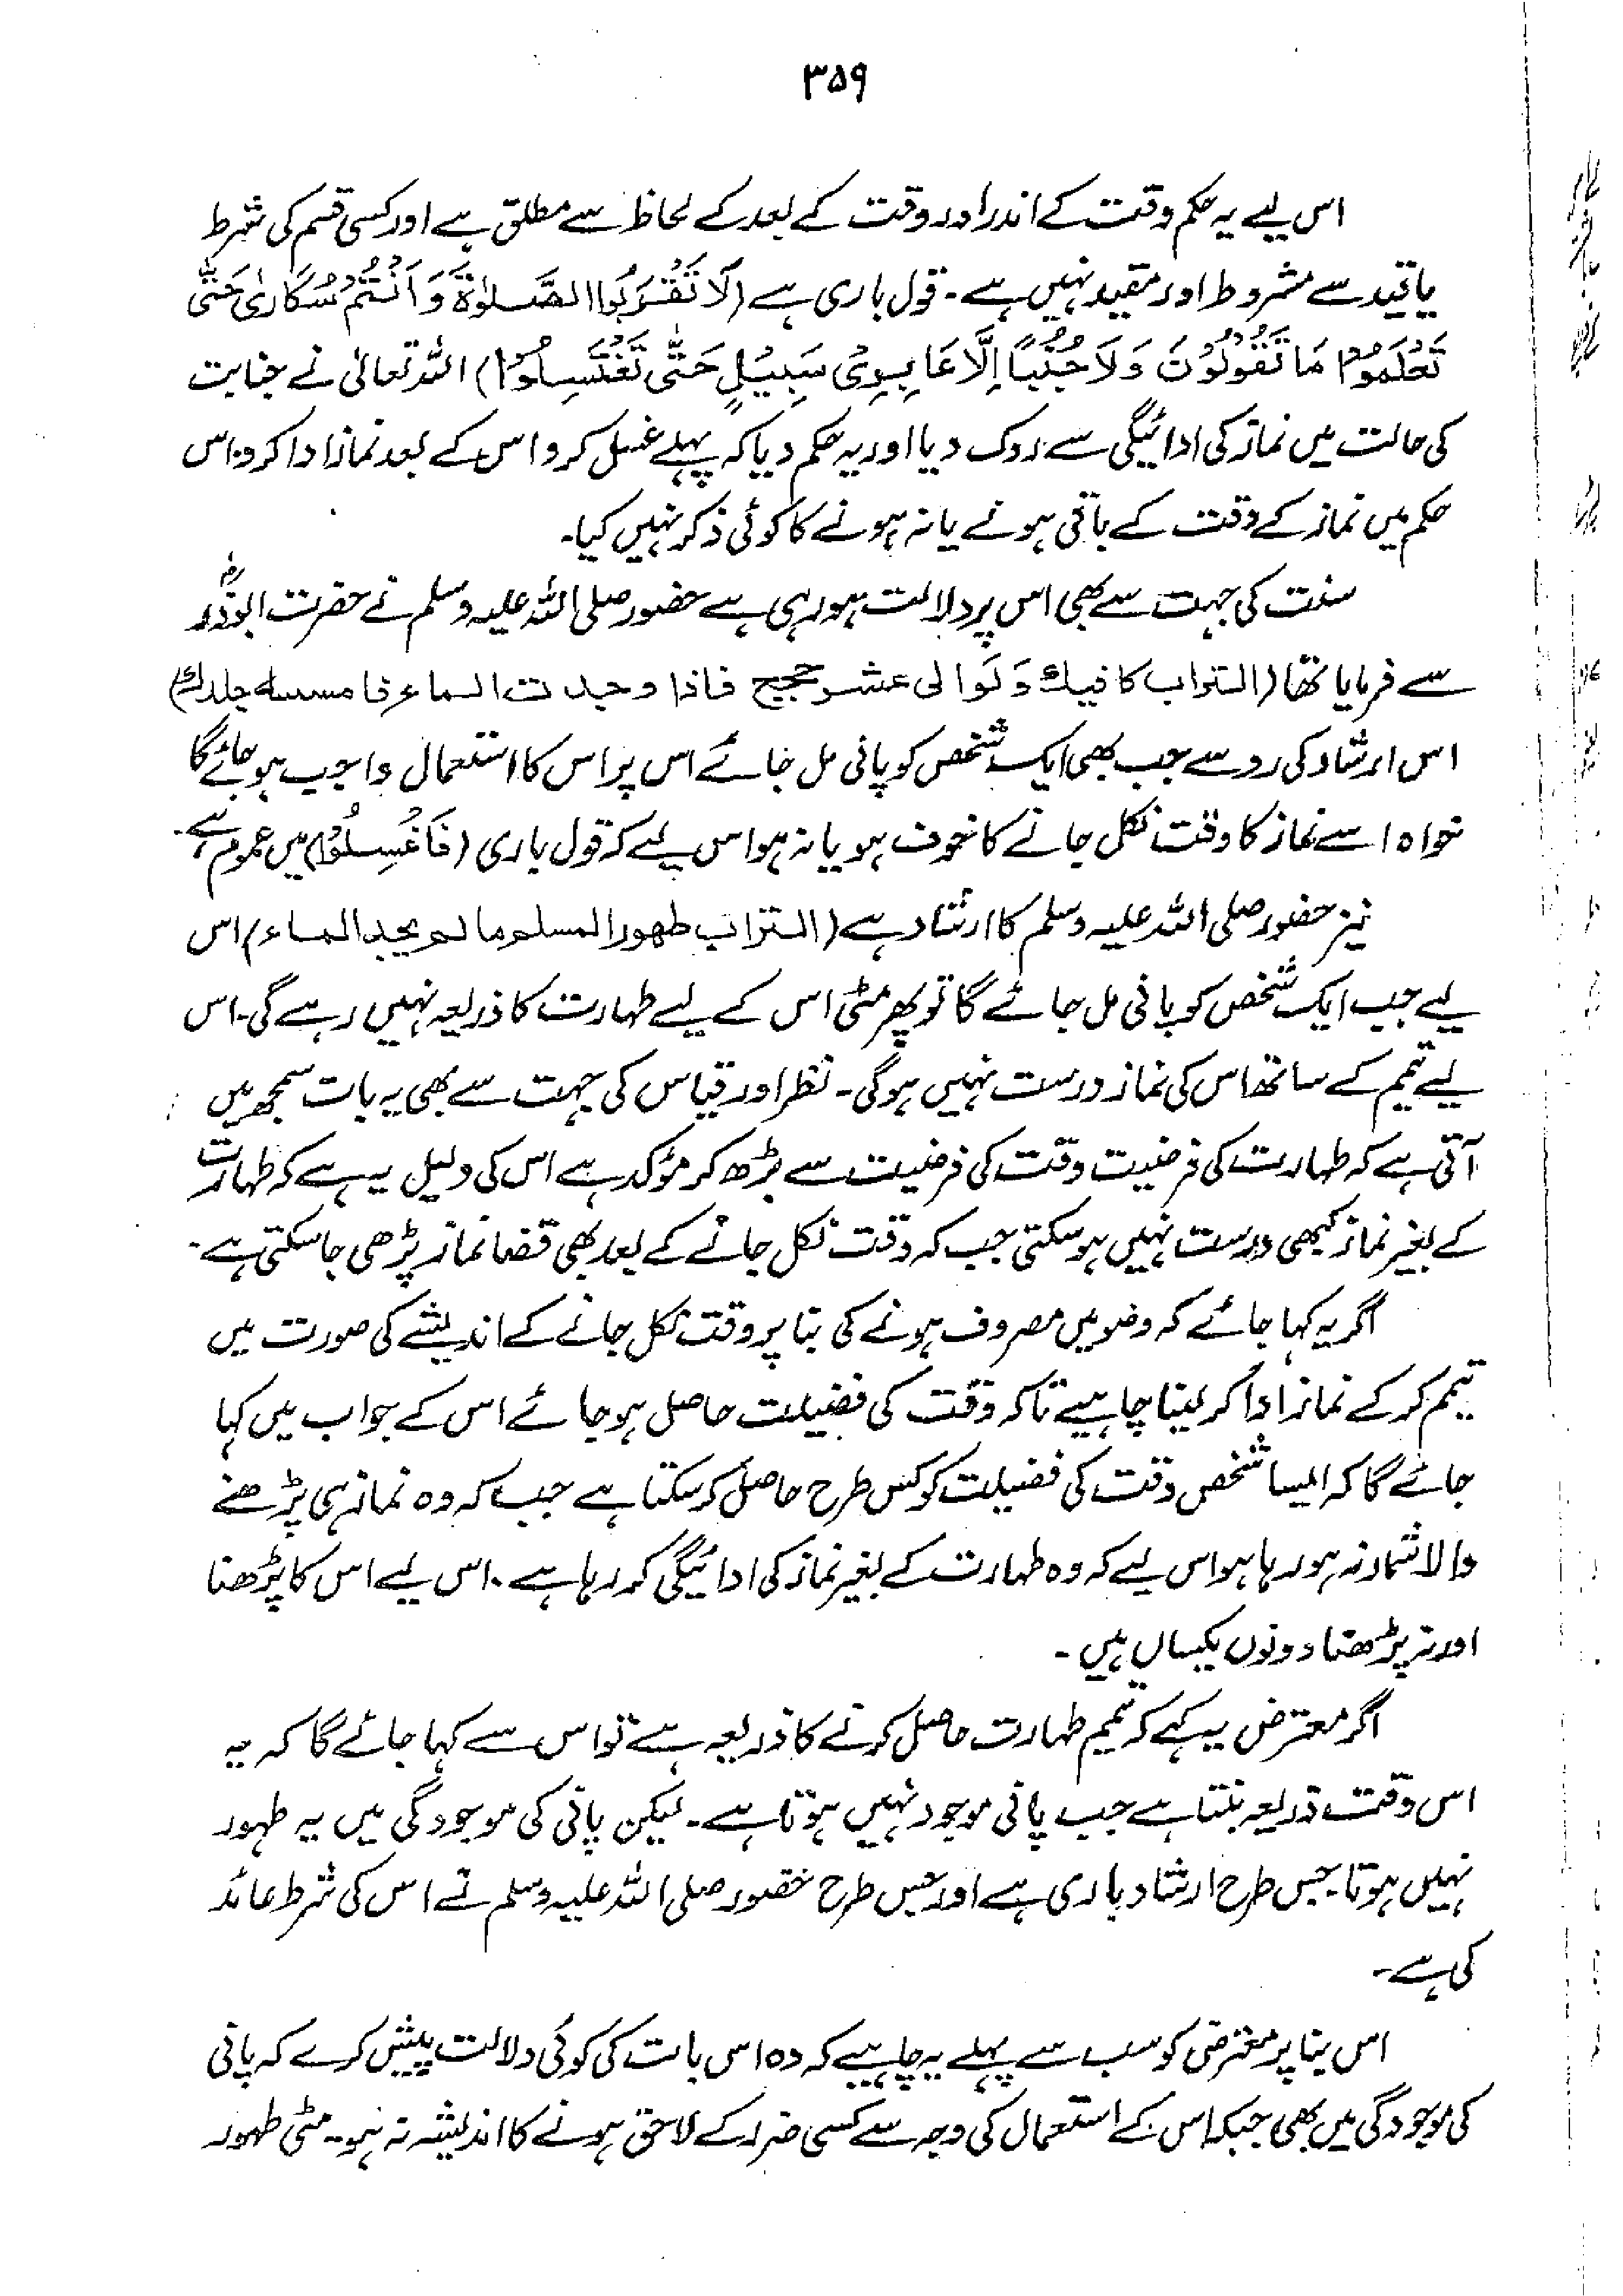 ۳۵۹
اس لیے یہ حکم وقت کے اندر اور وقت کے بعد کے لحاظ سے مطلق ہے اور کسی قسم کی شرط
یا قید سے مشروط اور مقید نہیں ہے۔ قول باری ہے (لَا تَقْرَبُوا الصَّلوٰةَ وَ اَنْتُمْ سُكَارٰى حَتّٰى
تَعْلَمُوْا مَا تَقُوْلُوْنَ وَلَا جُنُبًا اِلَّا عَابِرِیْ سَبِیْلٍ حَتّٰى تَغْتَسِلُوْا) اللہ تعالیٰ نے جنابت
کی حالت میں نماز کی ادائیگی سے روک دیا اور یہ حکم دیا کہ پہلے غسل کرو اس کے بعد نماز ادا کرو۔ اس
حکم میں نماز کے وقت کے باقی ہونے یا نہ ہونے کا کوئی ذکر نہیں کیا۔
سنت کی جہت سے بھی اس پر دلالت ہو رہی ہے حضور صلی اللہ علیہ وسلم نے حضرت ابوذرؓ
سے فرمایا تھا (التراب كافيك وَلَو الى عشر حجيج فاذا وجدت الماء فامسسه جلدك)
اس ارشاد کی رو سے جب بھی ایک شخص کو پانی مل جائے اس پر اس کا استعمال واجب ہو جائے گا
خواہ اسے نماز کا وقت نکل جانے کا خوف ہو یا نہ ہو اس لیے کہ قول باری (فَاغْسِلُوْا) میں عموم ہے۔
نیز حضور صلی اللہ علیہ وسلم کا ارشاد ہے (التراب طهور المسلم ما لم يجد الماء) اس
لیے جب ایک شخص کو پانی مل جائے گا تو پھر مٹی اس کے لیے طہارت کا ذریعہ نہیں رہے گی۔ اس
لیے تیمم کے ساتھ اس کی نماز درست نہیں ہوگی۔ نظر اور قیاس کی جہت سے بھی یہ بات سمجھ میں
آتی ہے کہ طہارت کی فرضیت وقت کی فرضیت سے بڑھ کر مؤکد ہے اس کی دلیل یہ ہے کہ طہارت
کے بغیر نماز کبھی درست نہیں ہو سکتی جب کہ وقت نکل جانے کے بعد بھی قضا نماز پڑھی جا سکتی ہے۔
اگر یہ کہا جائے کہ وضو میں مصروف ہونے کی بنا پر وقت نکل جانے کے اندیشے کی صورت میں
تیمم کر کے نماز ادا کر لینا چاہیے تاکہ وقت کی فضیلت حاصل ہو جائے اس کے جواب میں کہا
جائے گا کہ ایسا شخص وقت کی فضیلت کو کس طرح حاصل کر سکتا ہے جب کہ وہ نماز ہی پڑھنے
والا شمار نہ ہو رہا ہو اس لیے کہ وہ طہارت کے بغیر نماز کی ادائیگی کر رہا ہے۔ اس لیے اس کا پڑھنا
اور نہ پڑھنا دونوں یکساں ہیں۔
اگر معترض یہ کہے کہ تیمم طہارت حاصل کرنے کا ذریعہ ہے تو اس سے کہا جائے گا کہ یہ
اس وقت ذریعہ بنتا ہے جب پانی موجود نہیں ہوتا ہے۔ لیکن پانی کی موجودگی میں یہ طہور
نہیں ہوتا۔ جس طرح ارشاد باری ہے اور جس طرح حضور صلی اللہ علیہ وسلم نے اس کی شرط عائد
کی ہے۔
اس بنا پر معترض کو سب سے پہلے یہ چاہیے کہ وہ اس بات کی کوئی دلالت پیش کرے کہ پانی
کی موجودگی میں بھی جبکہ اس کے استعمال کی وجہ سے کسی ضرر کے لاحق ہونے کا اندیشہ نہ ہو۔ مٹی طہور